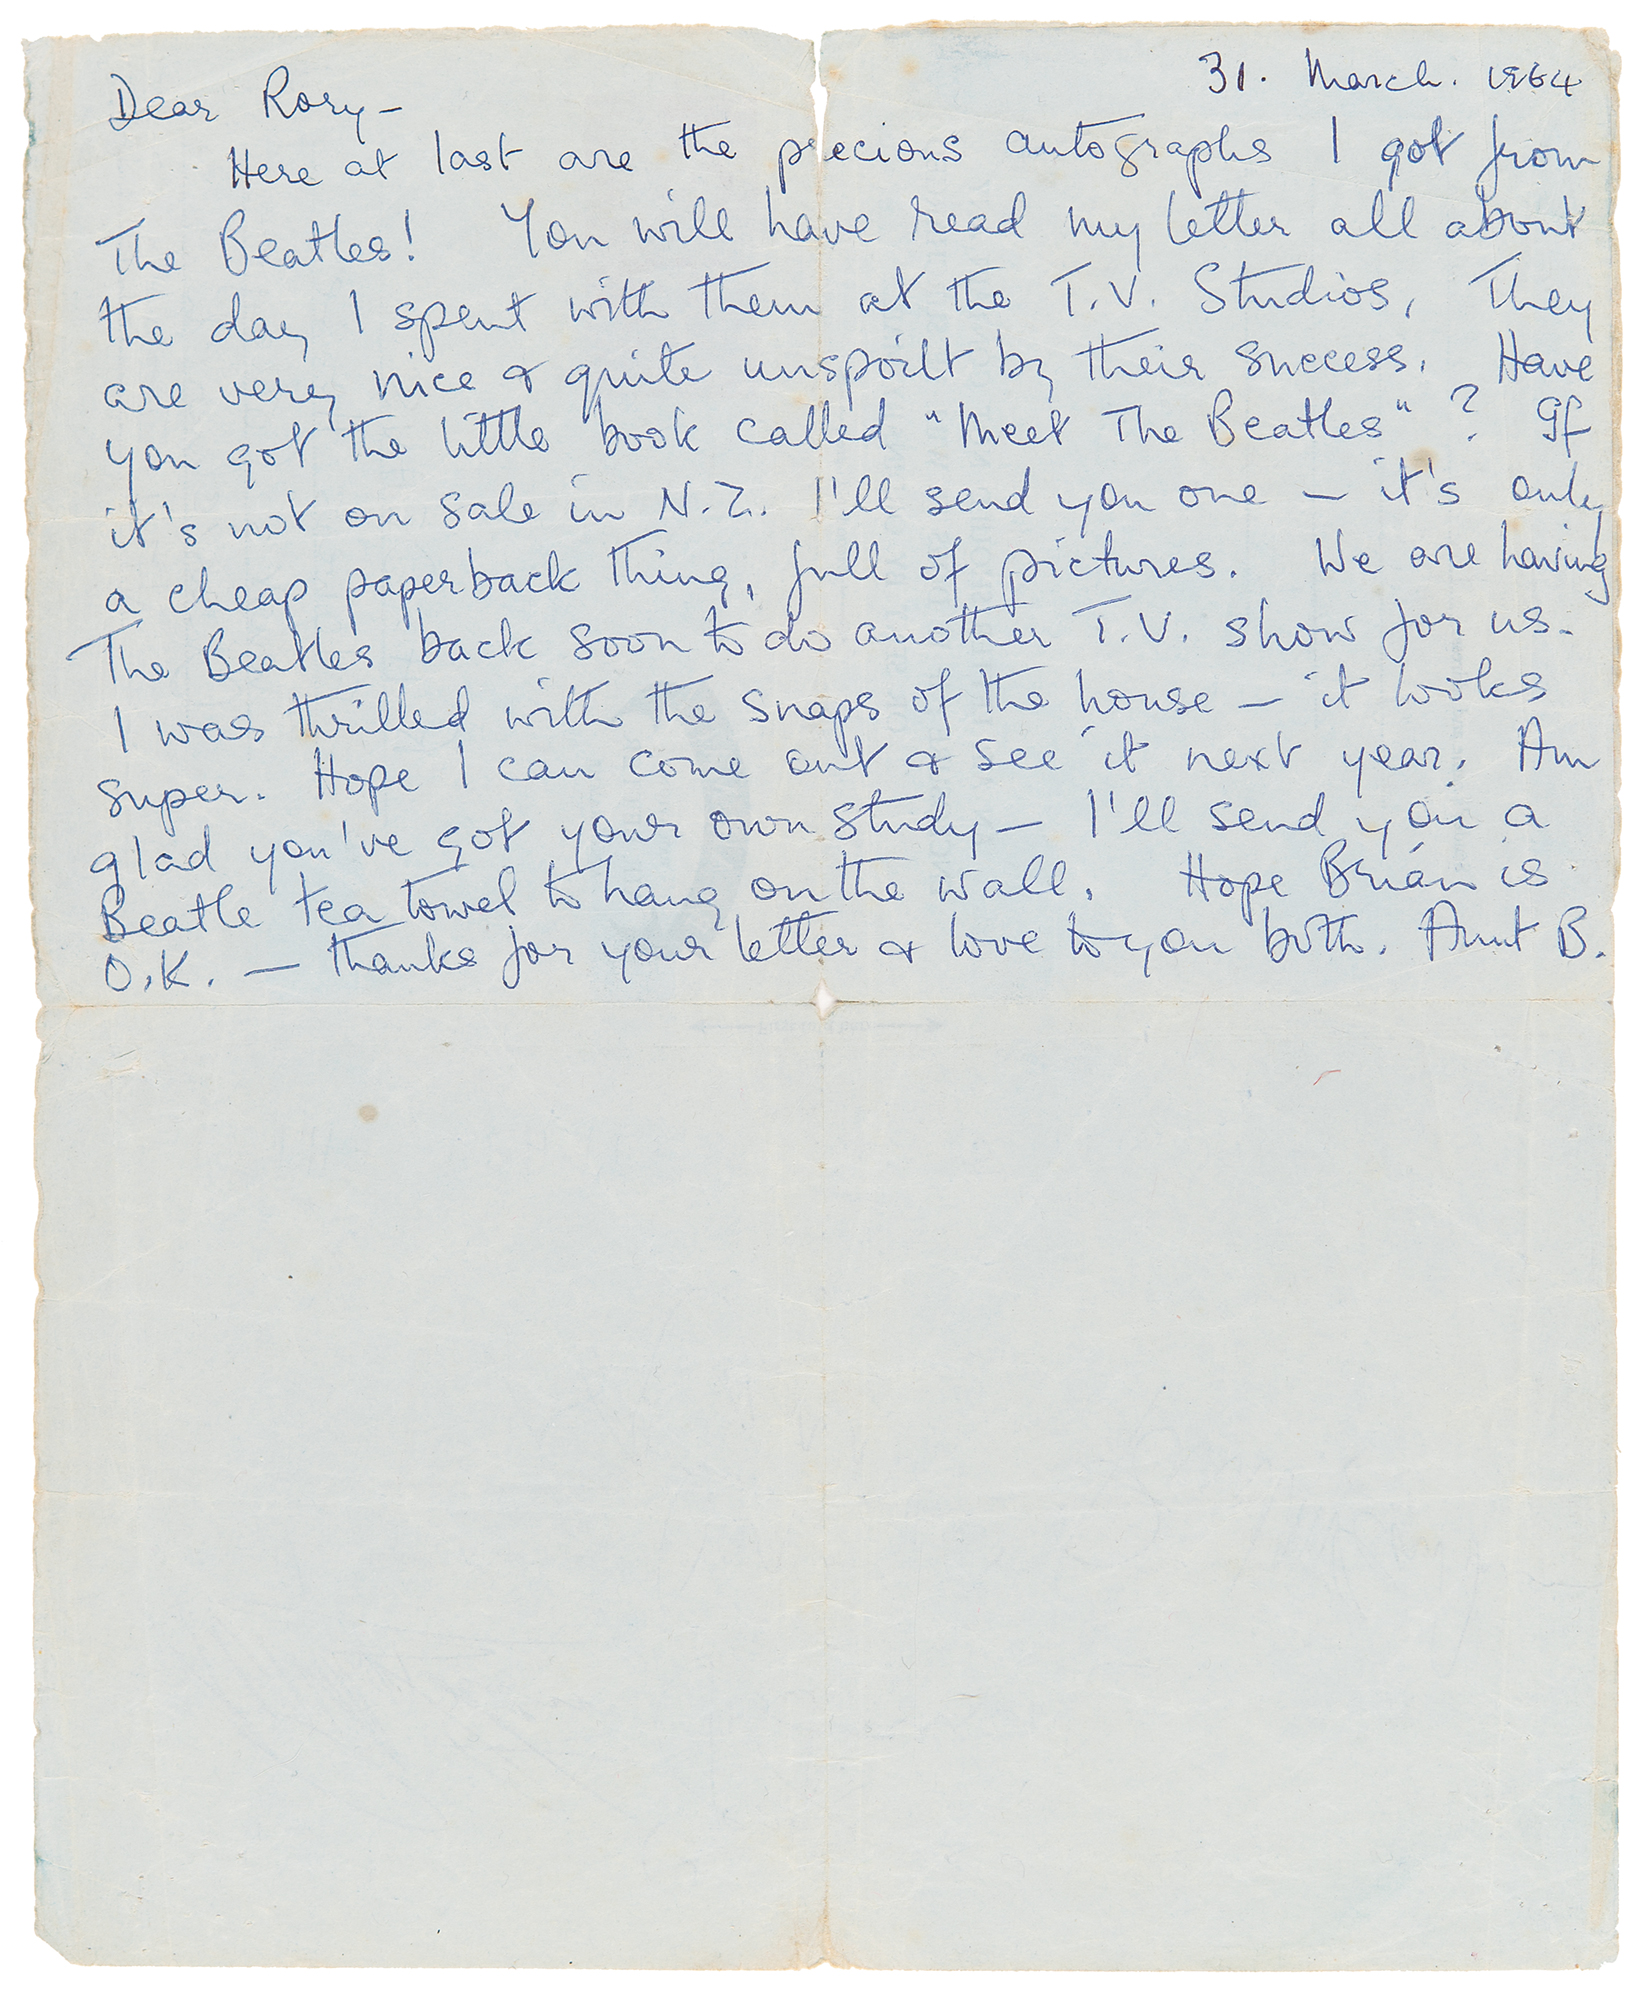 31. March. 1964
Dear Rory —
Here at last are the precious autographs I got from
The Beatles! You will have read my letter all about
the day I spent with them at the T.V. Studios. They
are very nice & quite unspoilt by their success. Have
you got the little book called "Meet The Beatles"? If
it's not on sale in N.Z. I'll send you one — it's only
a cheap paperback thing, full of pictures. We are having
The Beatles back soon to do another T.V. show for us.
I was thrilled with the snaps of the house — it looks
super. Hope I can come out & see it next year. Am
glad you've got your own study — I'll send you a
Beatle tea towel to hang on the wall. Hope Brian is
O.K. — thanks for your letter & love to you both. Aunt B.